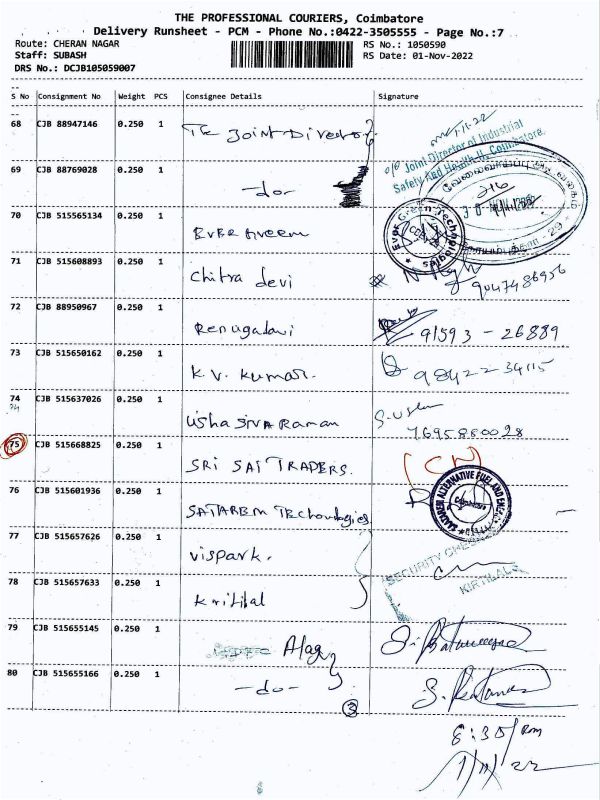 THE PROFESSIONAL COURIERS, Coimbatore
Delivery Runsheet - PCM - Phone No.:0422-3505555 - Page No.:7
Route: CHERAN NAGAR
RS No.: 1050590
Staff: SUBASH
RS Date: 01-Nov-2022
DRS No.: DCJB105059007
S No Consignment No Weight PCS Consignee Details Signature
68 CJB 88947146 0.250 1 The Joint Director
O/o Joint Director of Industrial
Safety And Health-II, Coimbatore.
69 CJB 88769028 0.250 1 -do-
70 CJB 515565134 0.250 1 Ever Green
Ever Green Technologies
71 CJB 515608893 0.250 1 Chitra devi 9047486956
72 CJB 88950967 0.250 1 Renugadavi 91593-26889
73 CJB 515650162 0.250 1 K.V. Kumar. 98422 34115
74 CJB 515637026 0.250 1 Usha Siva Raman
7695880028
75 CJB 515668825 0.250 1 SRI SAI TRADERS. (CN)
76 CJB 515601936 0.250 1 SATAREM Technologies
77 CJB 515657626 0.250 1 Vispark.
SECURITY
KIRTILALS
78 CJB 515657633 0.250 1 Kritilal
79 CJB 515655145 0.250 1
80 CJB 515655166 0.250 1 -do-
3
8:30 Pm
1/11/22